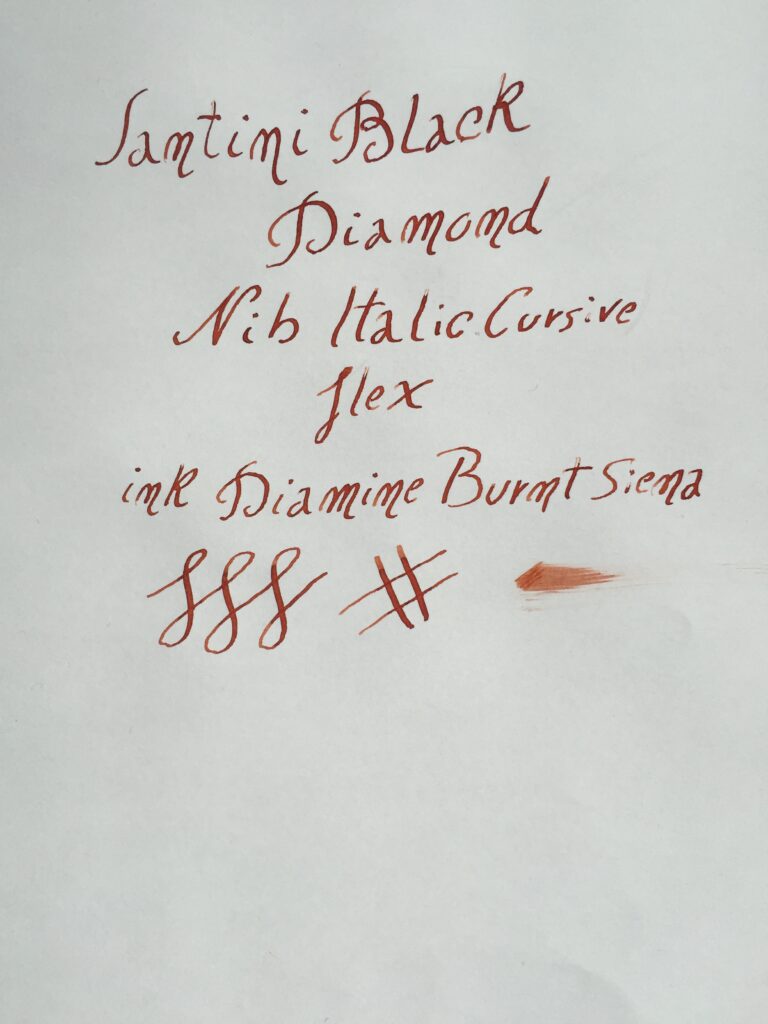 Santini Black
Diamond
Nib Italic Cursive
flex
ink Diamine Burnt Siena